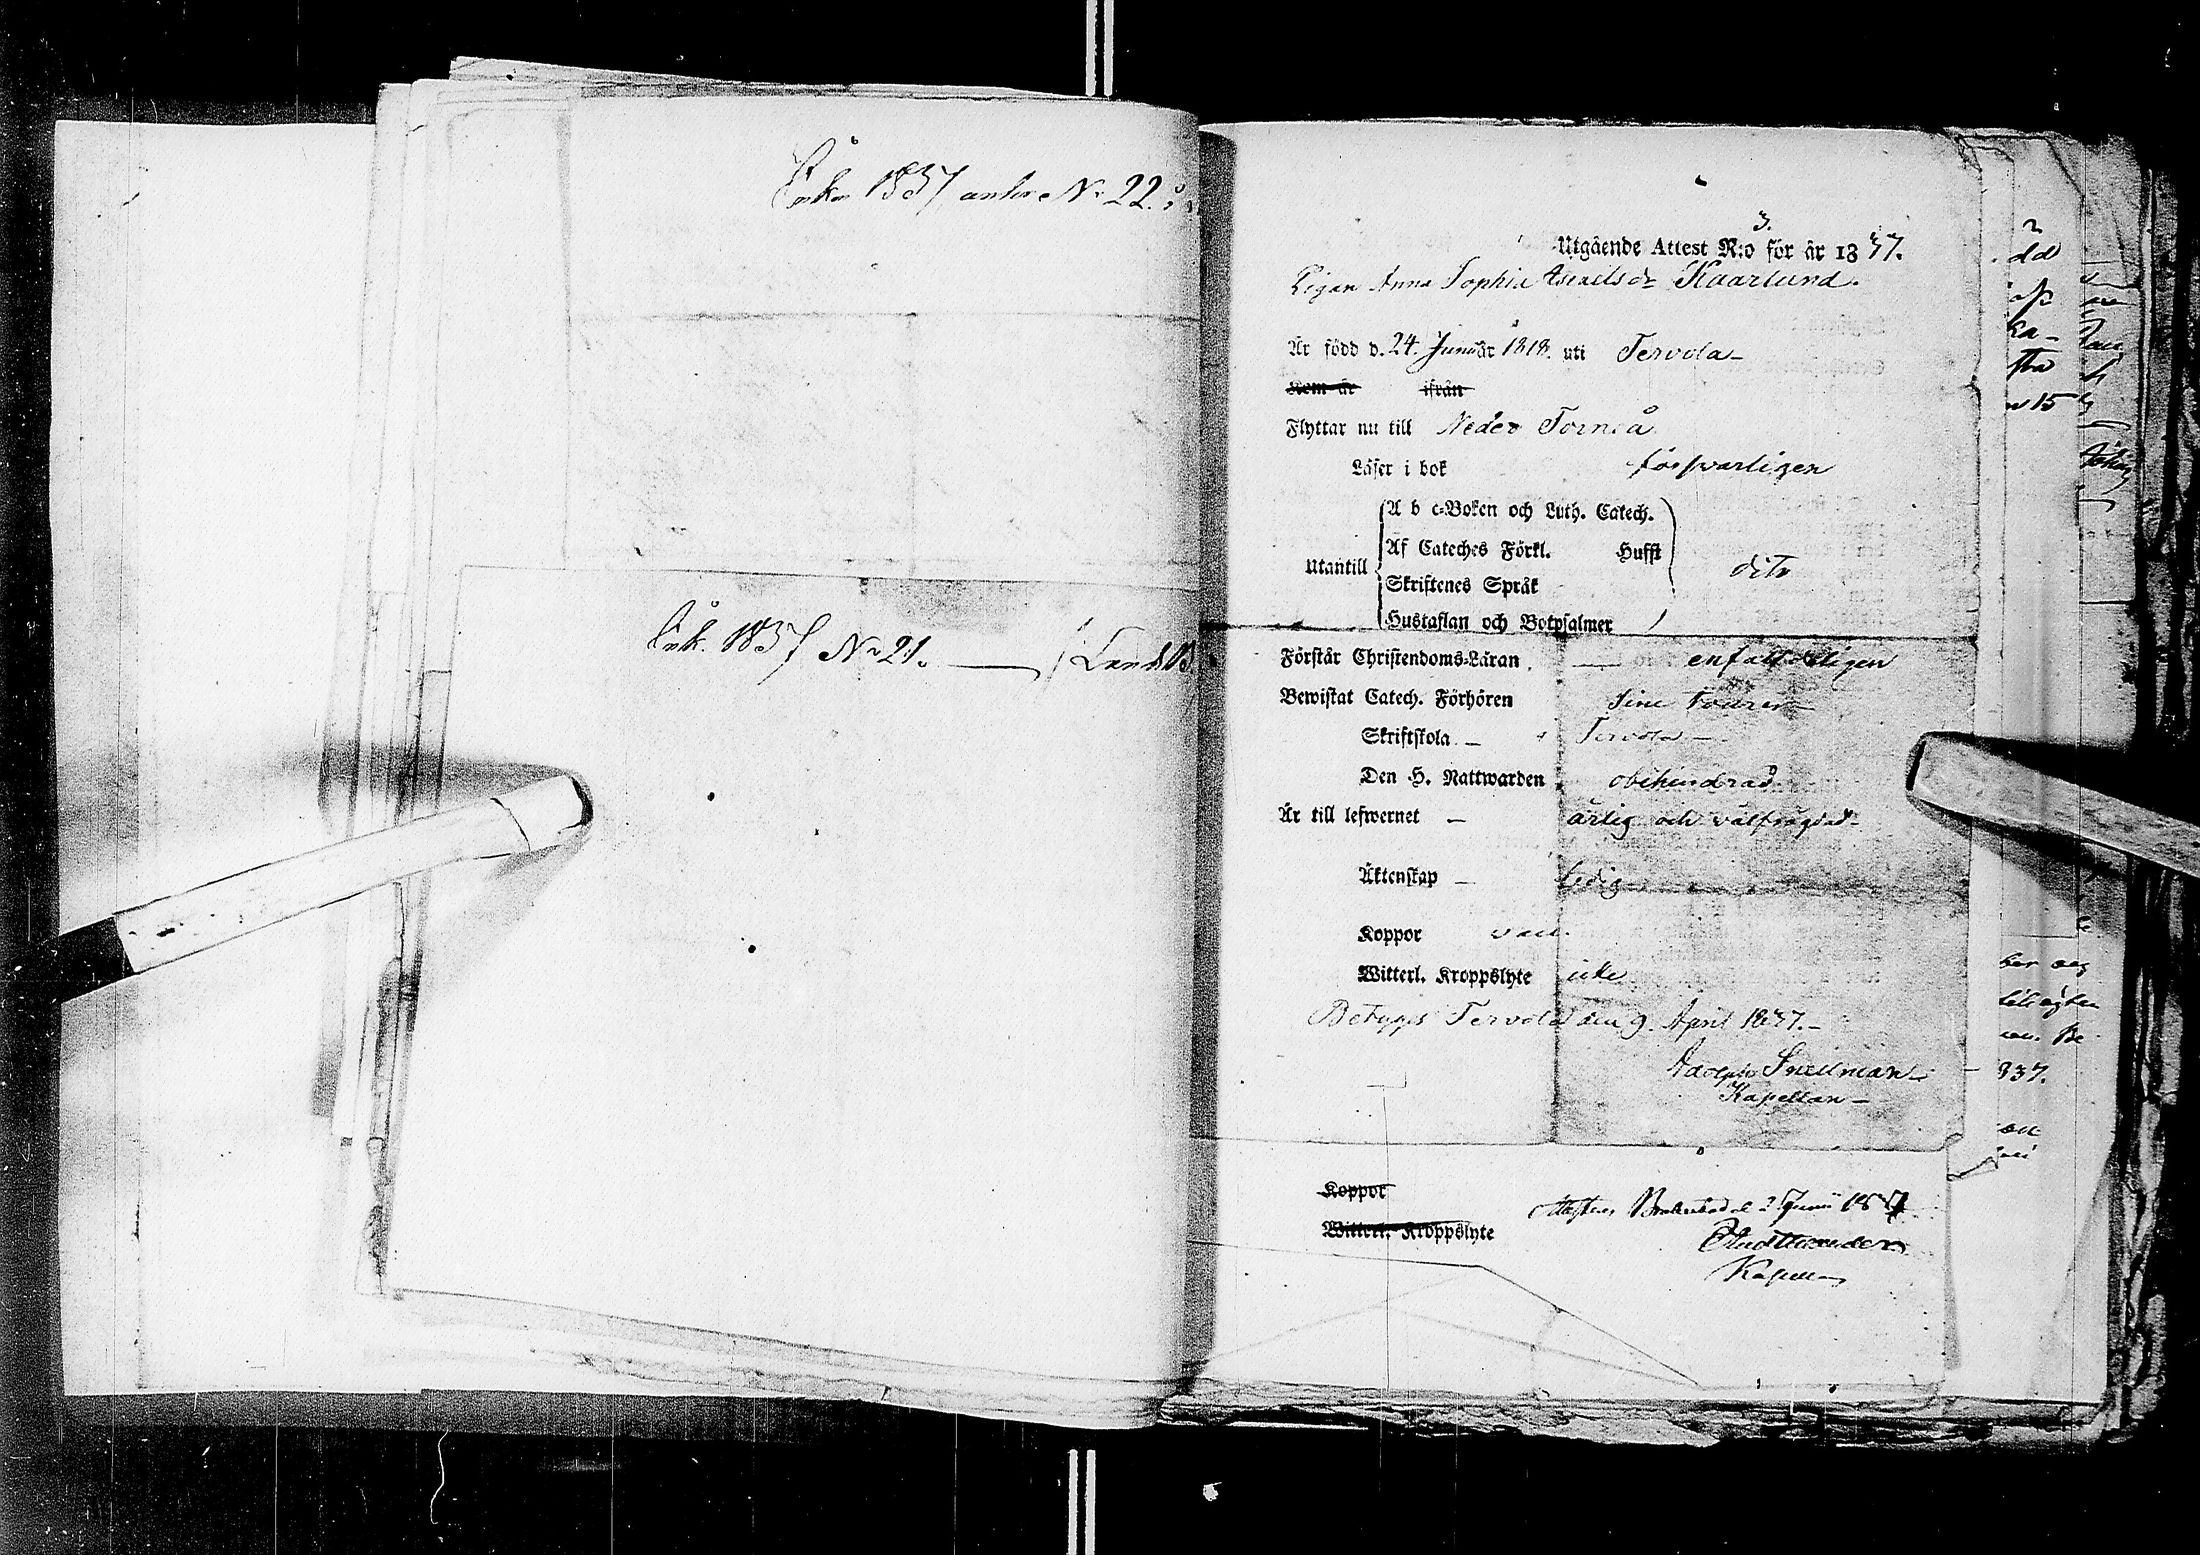 1837 N:o 22.
1837 N:o 21. Landsb
3.
Utgående Attest N:o för år 1837.
Pigan Anna Sophia Kaarlund.
Är född d. 24 Januär 1818. uti Tervola
Kom år ifrån
Flyttar nu till Neder Torneå
Läser i bok försvarligen
A b c-Boken och Luth. Catech.
Af Cateches Förkl. Hufst
Utantill dito
Skriftenes Språk
Hustaflan och Botpsalmer
Förstår Christendoms-Läran enfaldeligen
Bewistat Catech. Förhören sine tourer
Skriftskola Tervola
Den H. Nattwarden obehindrad
Är till lefwernet ärlig och välfrägdad
Äktenskap Ledig
Koppor vacc.
Witterl. Kroppslyte icke
Betygas Tervola den 9. April 1837.
Adolph Snellman
Kapellan
Koppor
Witterl. Kroppslyte
Brahestad d. 2 Junii 1837
Kapellan
dd
ka-
sta
15
337.